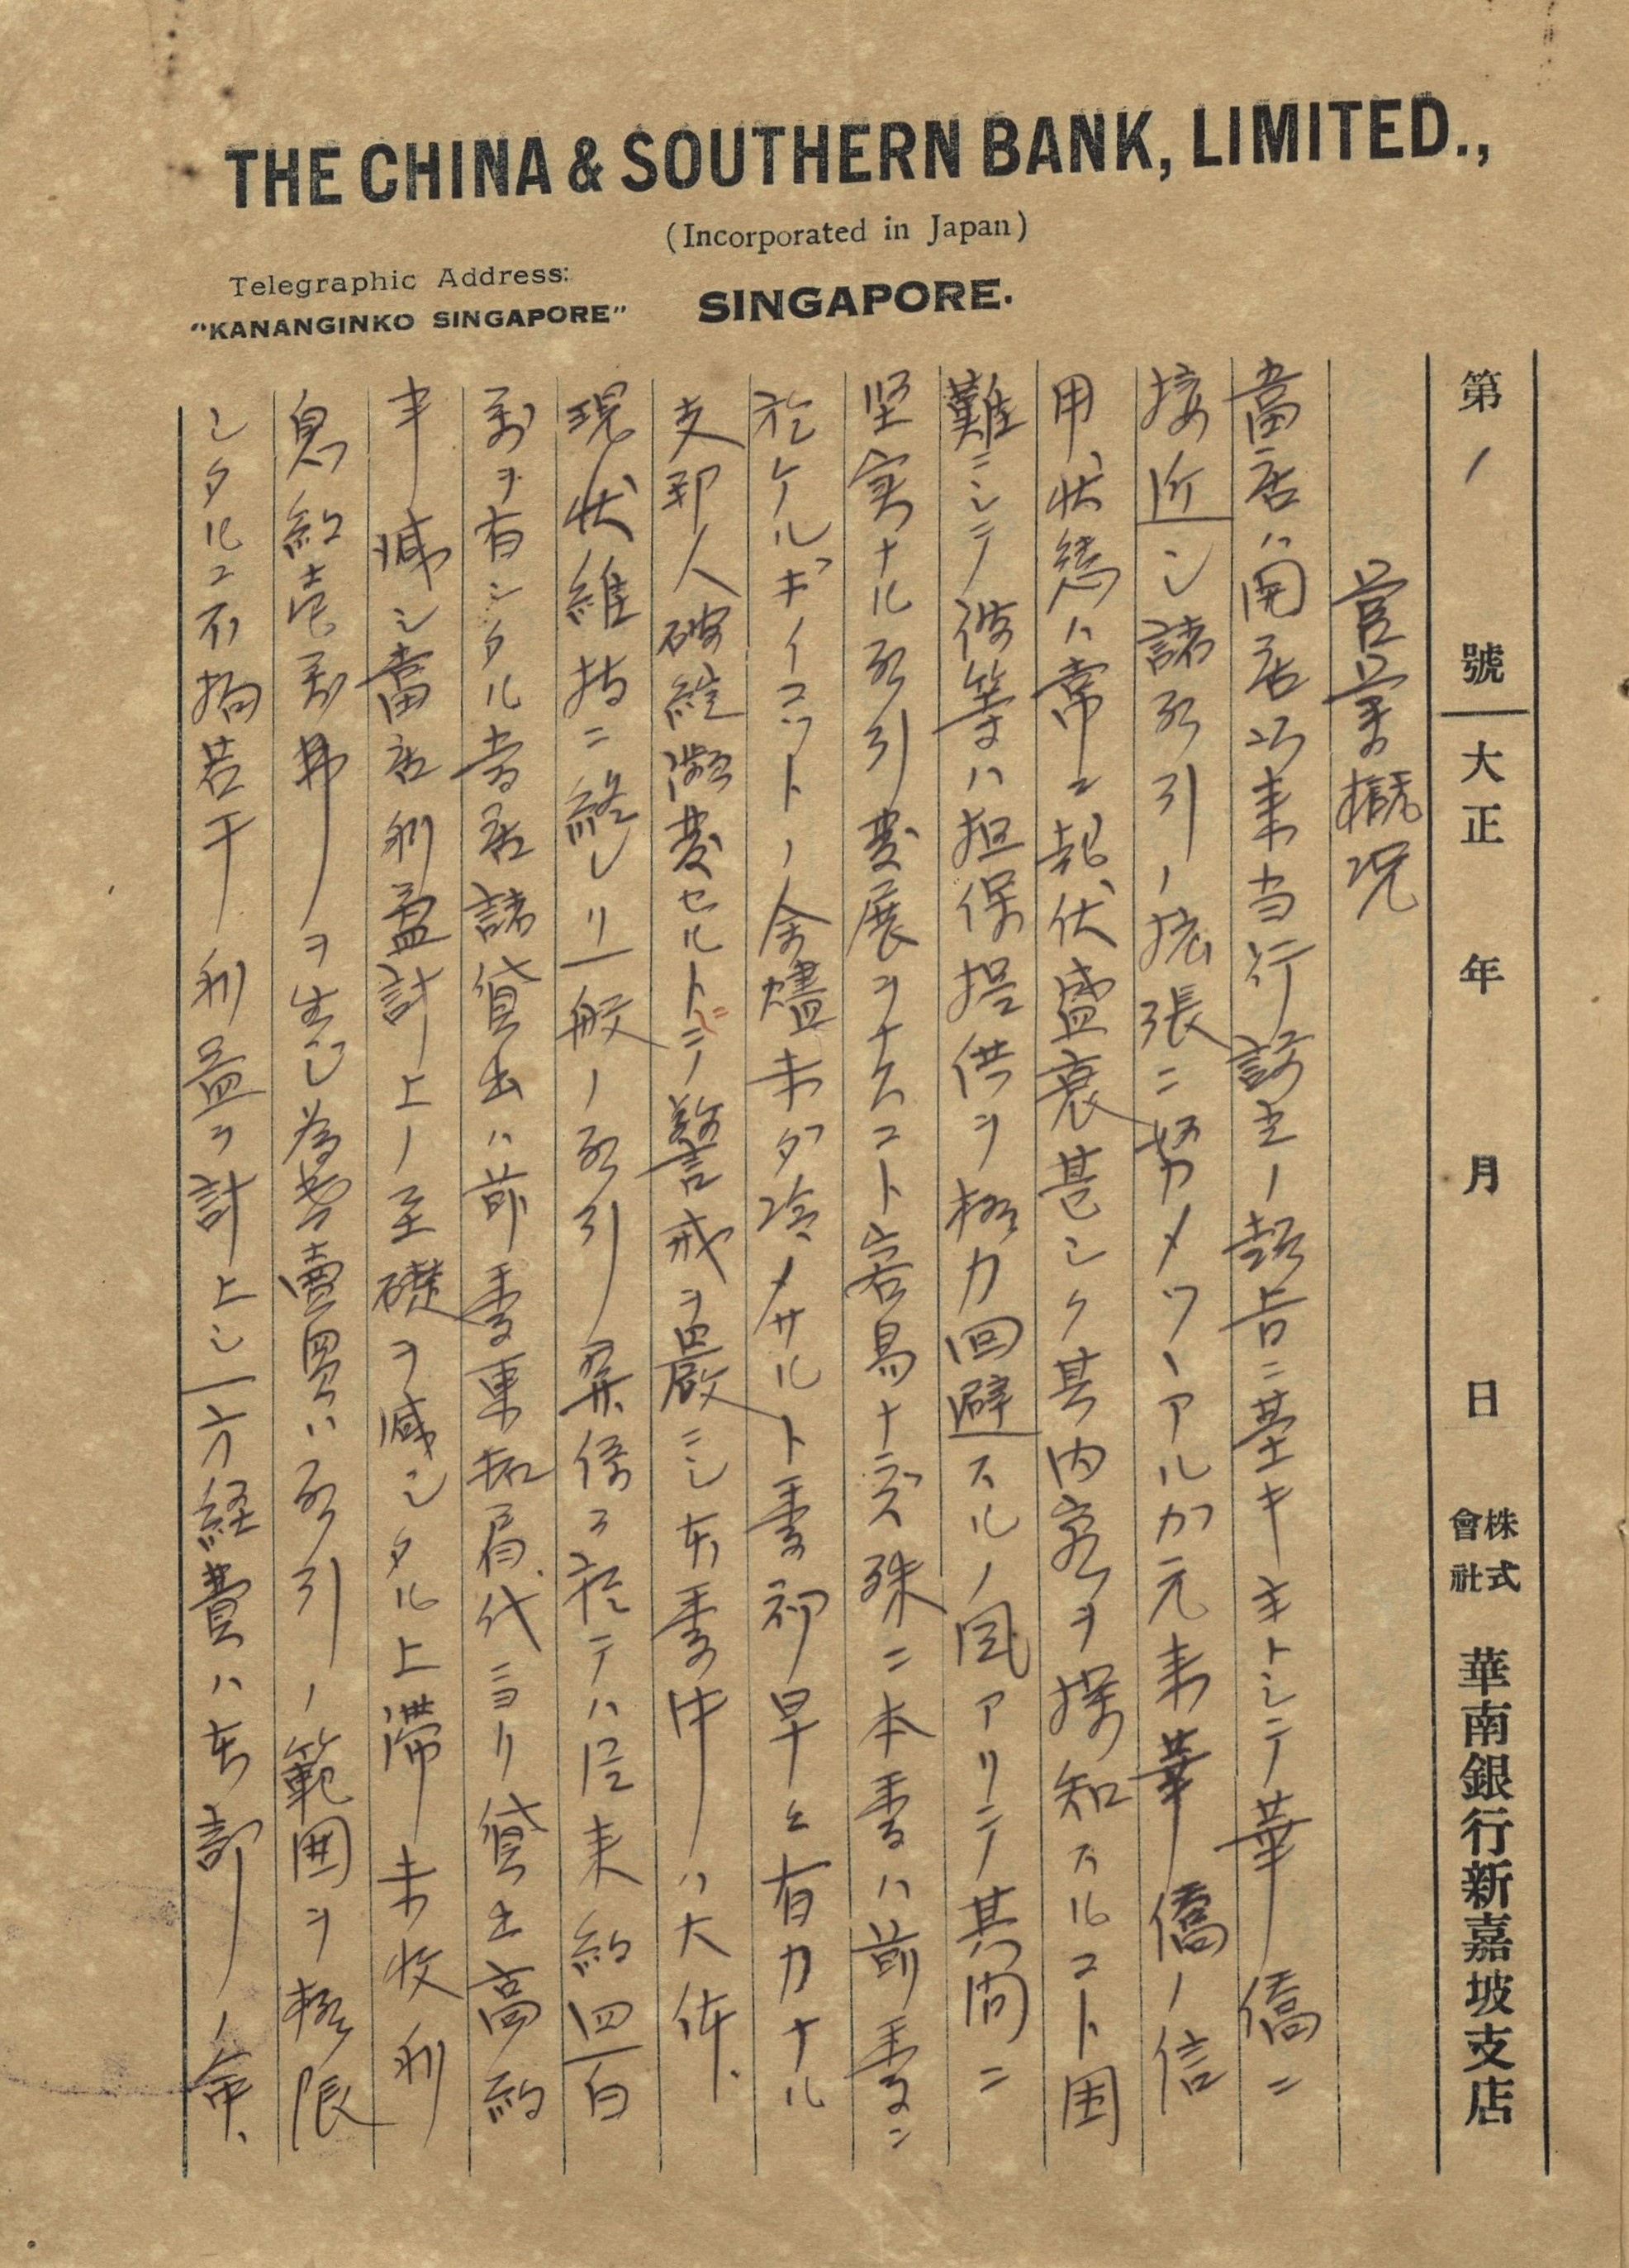 THE CHINA & SOUTHERN BANK, LIMITED.,
(Incorporated in Japan)
Telegraphic Address:
"KANANGINKO SINGAPORE"
SINGAPORE.
第1號 大正 年 月 日 株式會社 華南銀行新嘉坡支店
営業概况
當店ハ開店以来当行設立ノ趣旨ニ基キ主トシテ華僑ニ
接近シ諸取引ノ拡張ニ努力メツヽアルカ元来華僑ノ信
用状態ハ常ニ起伏盛衰甚シク其内容ヲ探知スルコト困
難ニシテ彼等ハ担保提供ヲ極力回避スルノ風アリテ其間ニ
坚実ナル取引発展ヲナスコト容易ナラズ殊ニ本季ハ前季ニ
於ケルボイコットノ余燼未ダ冷メサルト季初早々有力ナル
支那人破綻頻発セルトニテ警戒ヲ厳ニシ本季中ハ大体
現状維持ニ終レリ一般ノ取引関係ニ於テハ従来約四百
万ヲ有シタル当店諸貸出ハ前季東拓肩代ニヨリ貸出高約
半減シ當店利益計上ノ基礎ヲ減シタル上滞未收利
息約壱万弗ヲ生シ為替賣買ハ取引ノ範囲ヲ極限
シタルニ不拘若干利益ヲ計上シ一方経費ハ本部ノ命